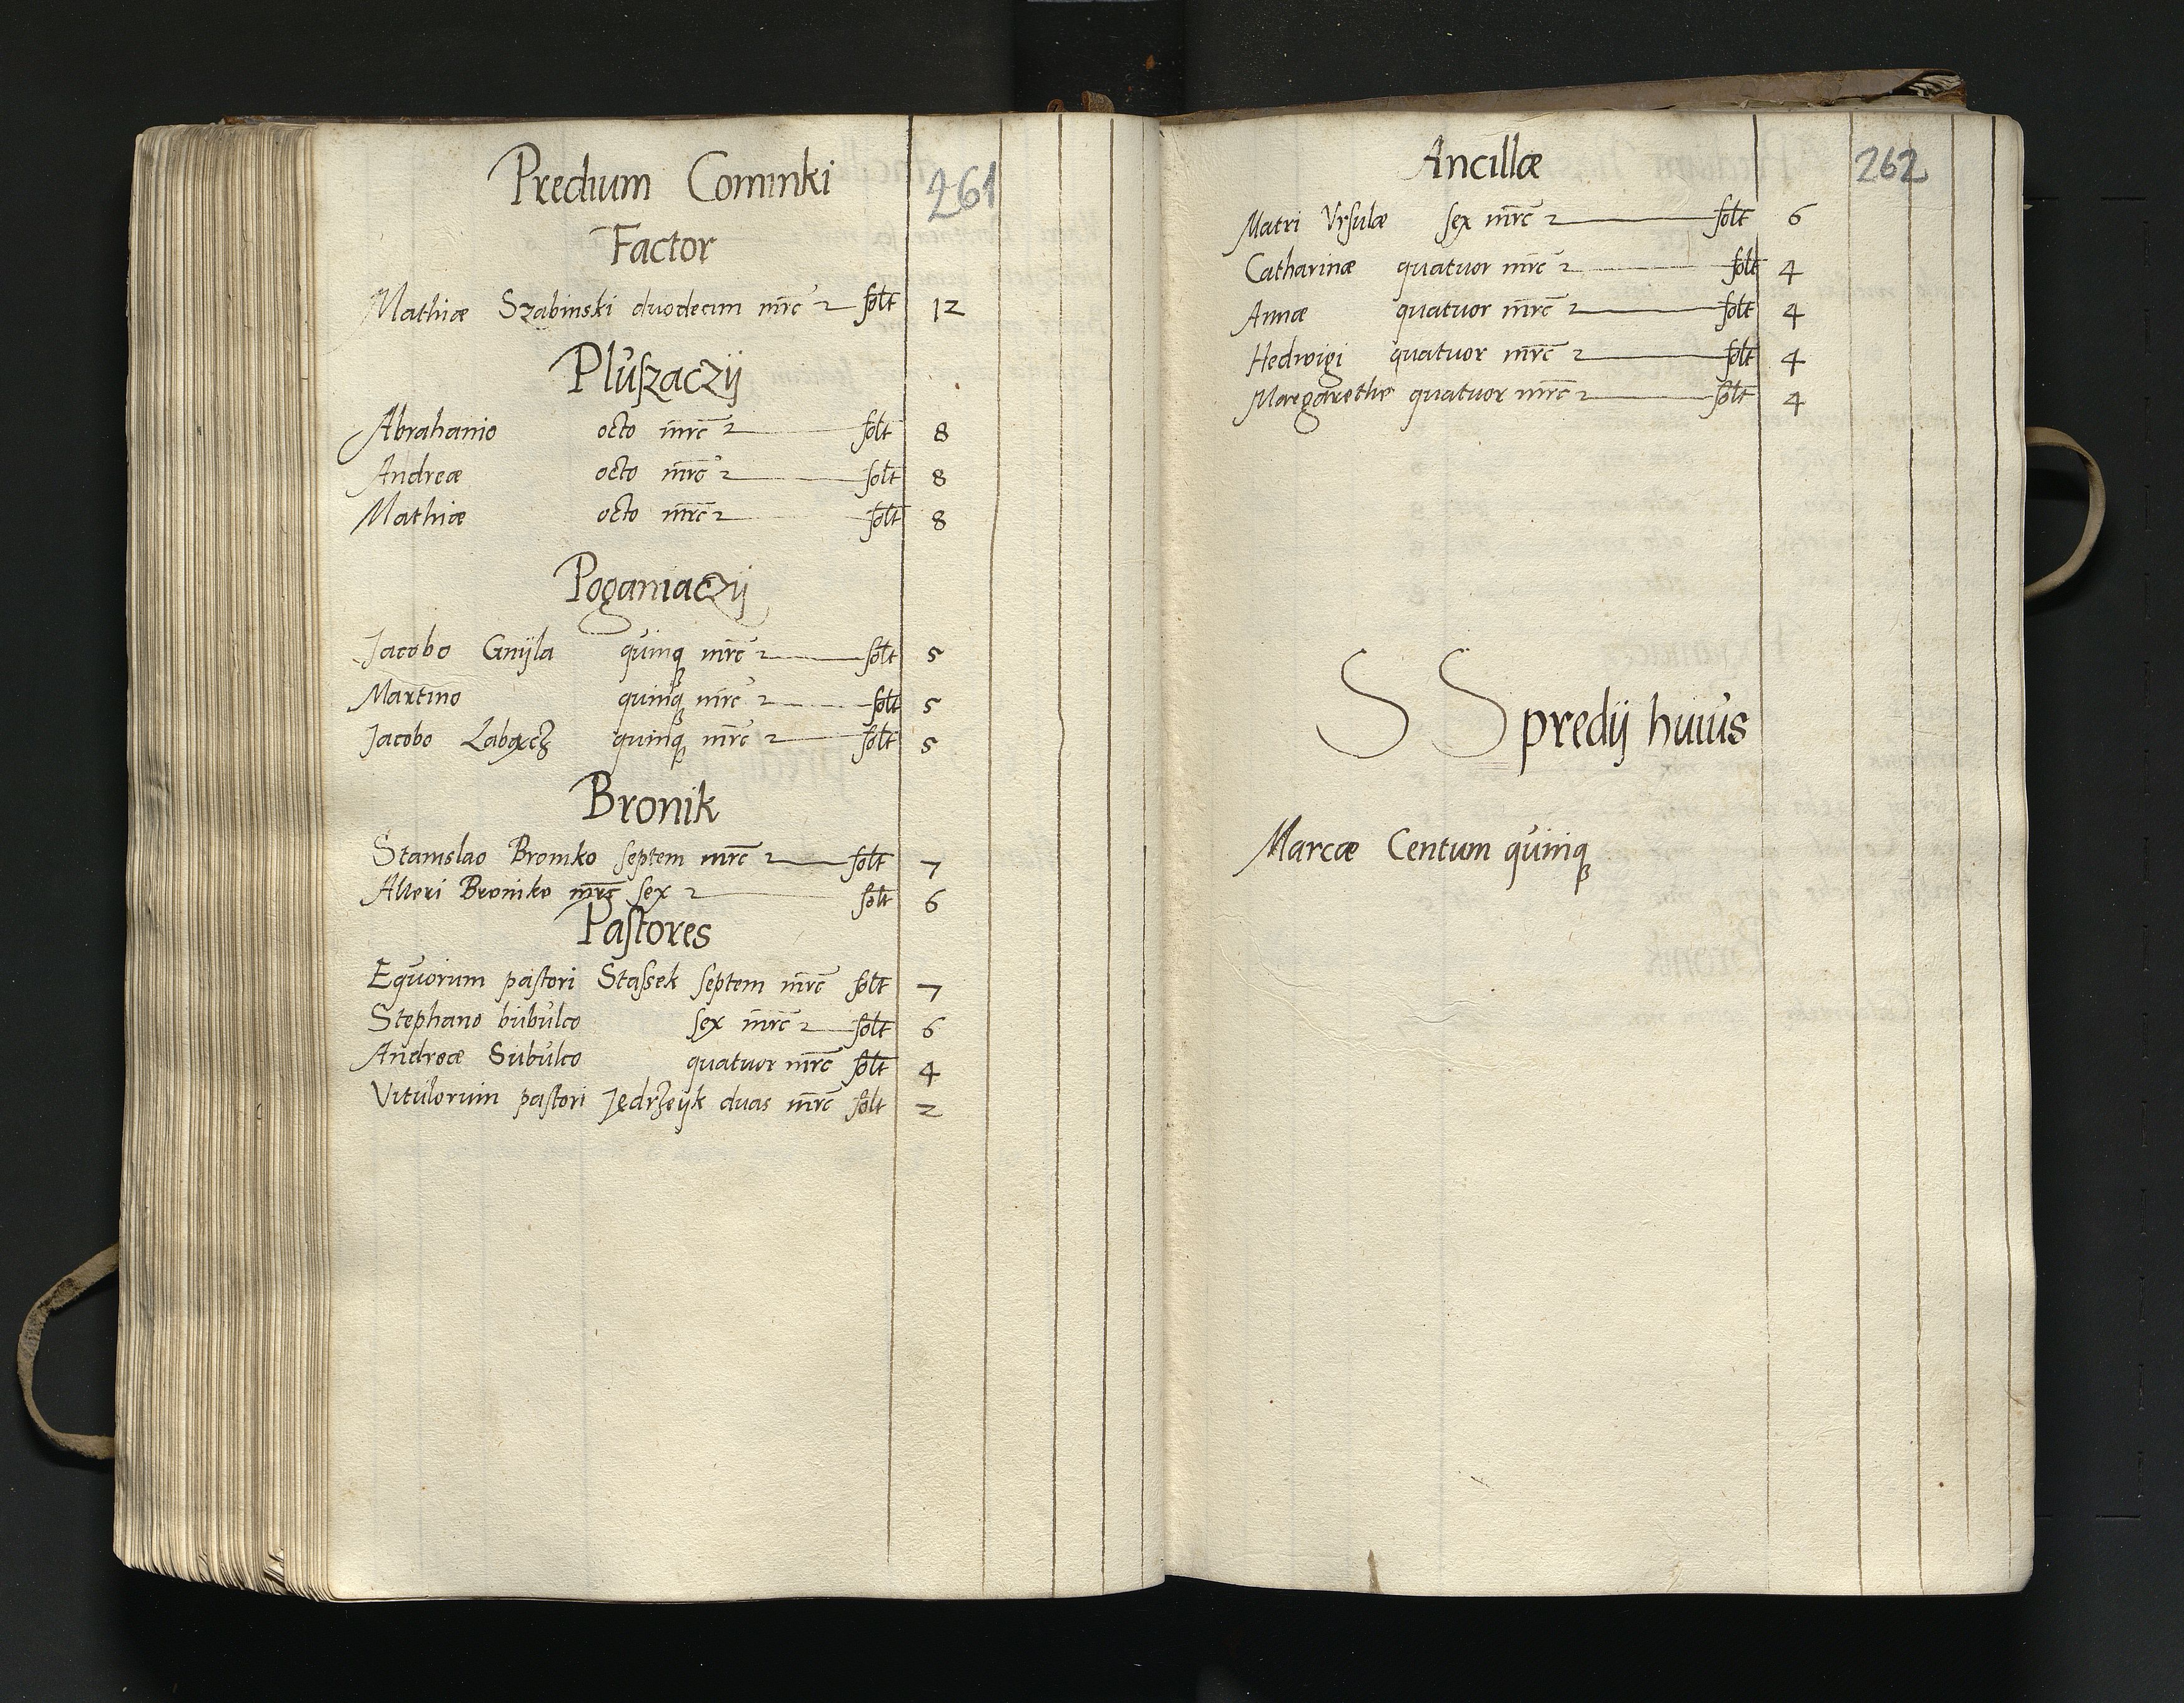 Predium Cominki
261
Factor
Mathiæ Szabinski duodecim mrc̄ ſolt 12
Pluſzaczÿ
Abrahamo octo mrc̄ ſolt 8
Andreæ octo mrc̄ ſolt 8
Mathiæ octo mrc̄ ſolt 8
Poganiaczÿ
Jacobo Gnÿla quinqꝫ mrc̄ ſolt 5
Martino quinqꝫ mrc̄ ſolt 5
Jacobo Łabącz quinqꝫ mrc̄ ſolt 5
Bronik
Stanislao Broniko ſeptem mrc̄ ſolt 7
Alteri Broniko mrc̄ ſex ſolt 6
Paſtores
Equorum paſtori Staſsek ſeptem mrc̄ ſolt 7
Stephano bubulco ſex mrc̄ ſolt 6
Andreæ Subulco quatuor mrc̄ ſolt 4
Vitulorum paſtori Jędrzeÿk duas mrc̄ ſolt 2
Ancillæ
262
Matri Vrſulæ ſex mrc̄ ſolt 6
Catharinæ quatuor mrc̄ ſolt 4
Annæ quatuor mrc̄ ſolt 4
Hedwigi quatuor mrc̄ ſolt 4
Margarethe quatuor mrc̄ ſolt 4
S S predÿ huius
Marcæ Centum quinqꝫ